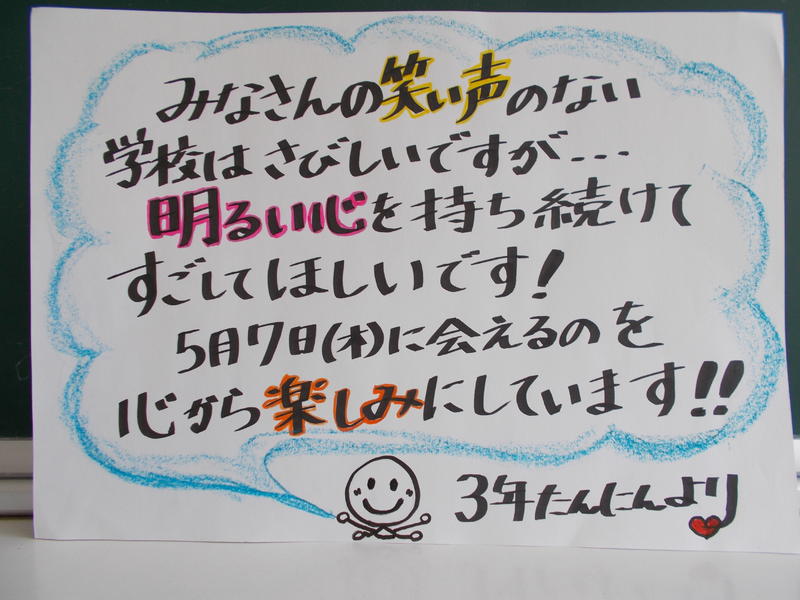 みなさんの笑い声のない
学校はさびしいですが...
明るい心を持ち続けて
すごしてほしいです!
5月7日(木)に会えるのを
心から楽しみにしています!!
3年たんにんより